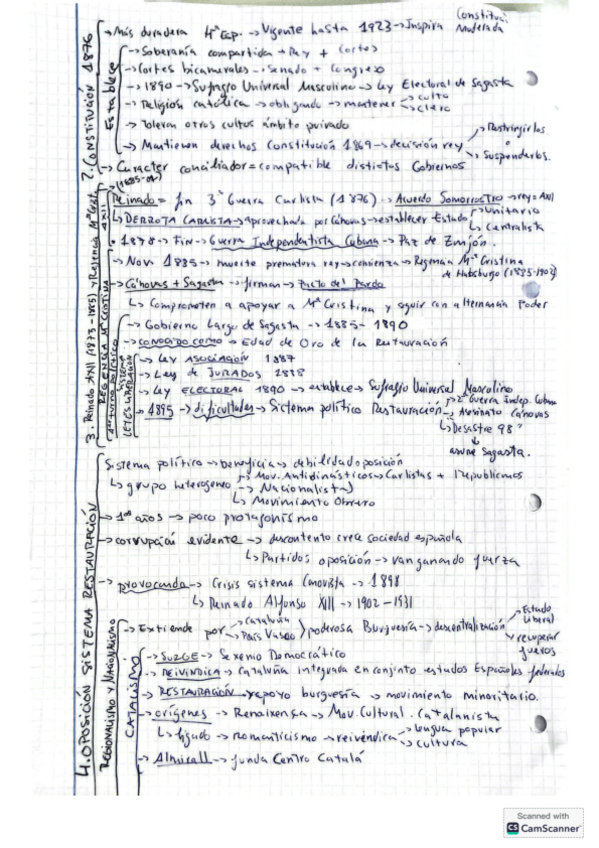 2. CONSTITUCIÓN 1876
→ Más duradera Hª Esp. → Vigente hasta 1923 → Inspira Constitución Moderada
Establece
→ Soberanía compartida → Rey + Cortes
→ Cortes bicamerales → Senado + Congreso
→ 1890 → Sufragio Universal Masculino → Ley Electoral de Sagasta
→ Religiosa católica → obligando → mantener → culto
→ clero
→ Toleran otros cultos ámbito privado
→ Mantienen derechos Constitución 1869 → decisión rey → Restringirlos
o
→ Suspenderlos.
→ Carácter conciliador = compatible distintos Gobiernos
3. Reinado AXII (1875-1885) y Regencia Mª Crist.
(1885-02)
AXII
Reinado = fin 3ª Guerra Carlista (1876) → Acuerdo Somorrostro → rey = AXII
↳ DERROTA CARLISTA → aprovechada por Cánovas → establecer Estado → Unitario
↳ Centralista
• 1878 → FIN → Guerra Independentista Cubana → Paz de Zanjón.
REGENCIA Mª CRISTINA
→ Nov. 1885 → muerte prematura rey → comienza → Regencia Mª Cristina
de Habsburgo (1885-1902)
→ Cánovas + Sagasta → firman → Pacto del Pardo
↳ Comprometen a apoyar a Mª Cristina y seguir con alternancia Poder
SISTEMA
→ Gobierno Largo de Sagasta → 1885-1890
→ CONOCIDO COMO → Edad de Oro de la Restauración
→ Ley ASOCIACIÓN 1887
→ Ley de JURADOS 1888
→ Ley ELECTORAL 1890 → establece → Sufragio Universal Masculino
→ 1895 → dificultades → Sistema político Restauración → 2ª Guerra Indep. Cubana
→ Asesinato Cánovas
↳ Desastre 98"
↓
asume Sagasta.
4. OPOSICIÓN SISTEMA RESTAURACIÓN
Sistema político → beneficia → debilidad oposición
↳ grupo heterogeneo → Mov. Antidinásticos → Carlistas + Republicanos
→ Nacionalistas
↳ Movimiento Obrero
→ 1ºs años → poco protagonismo
→ corrupción evidente → descontento crece sociedad española
↳ Partidos oposición → van ganando fuerza
→ provocando → Crisis sistema Canovista → 1898
↳ Reinado Alfonso XIII → 1902-1931
REGIONALISMO Y NACIONALISMO
→ Extiende por → Cataluña
→ País Vasco } poderosa Burguesía → descentralización → Estado Liberal
→ recuperar fueros
CATALISMO
→ SURGE → Sexenio Democrático
→ REIVINDICA → Cataluña integrada en conjunto estados Españoles federados
→ RESTAURACIÓN → apoyo burguesía → movimiento minoritario.
→ orígenes → Renaixença → Mov. Cultural. Catalanista
↳ ligado → romanticismo → reivindica → lengua popular
→ cultura
→ Almirall → funda Centro Catalá
Scanned with
CS CamScanner